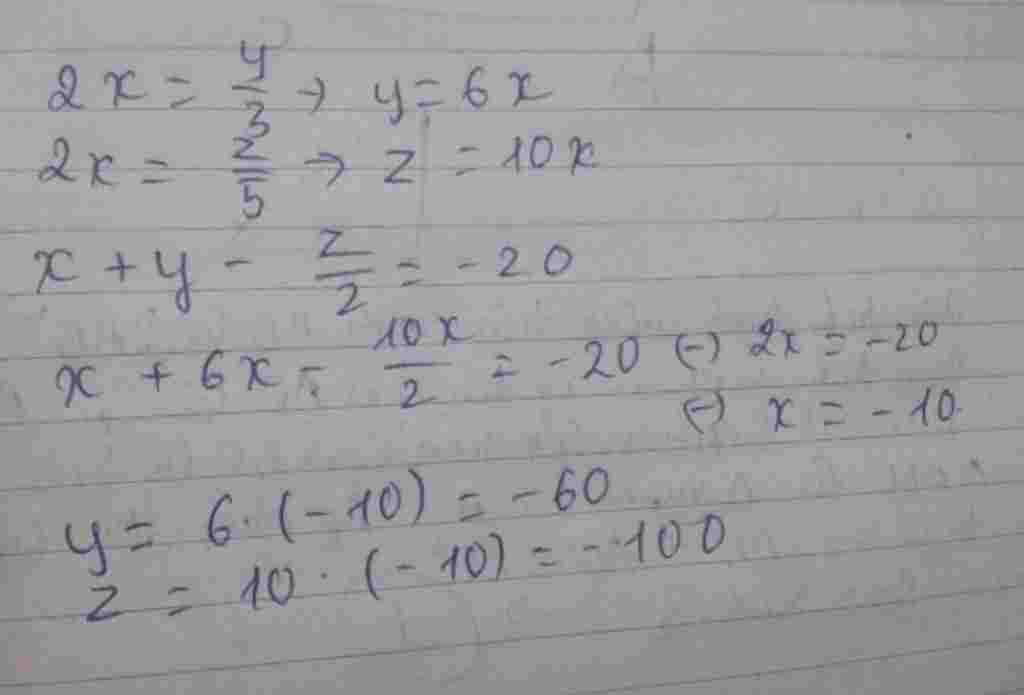 2x = y/3 → y = 6x
2x = z/5 → z = 10x
x + y - z/2 = -20
x + 6x - 10x/2 = -20 (-) 2x = -20
(-) x = -10
y = 6. (-10) = -60
z = 10 . (-10) = -100